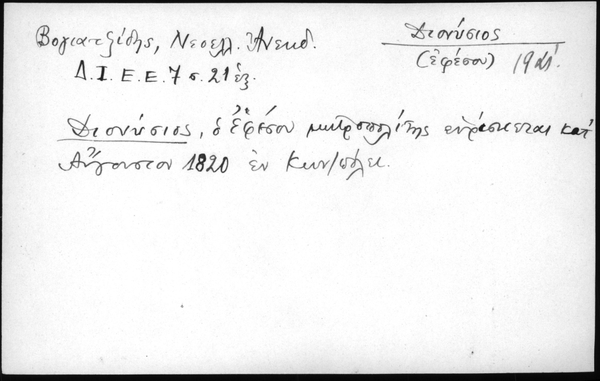 Βογιατζίδης, Νεοελλ. Ἀνεκδ.
Δ.Ι.Ε.Ε. 7 σ. 21 ἑξ.
Διονύσιος
(Ἐφέσου) 19 αἰ.
Διονύσιος, ὁ Ἐφέσου μητροπολίτης εὑρίσκεται κατ'
Αὔγουστον 1820 ἐν Κων/πόλει.